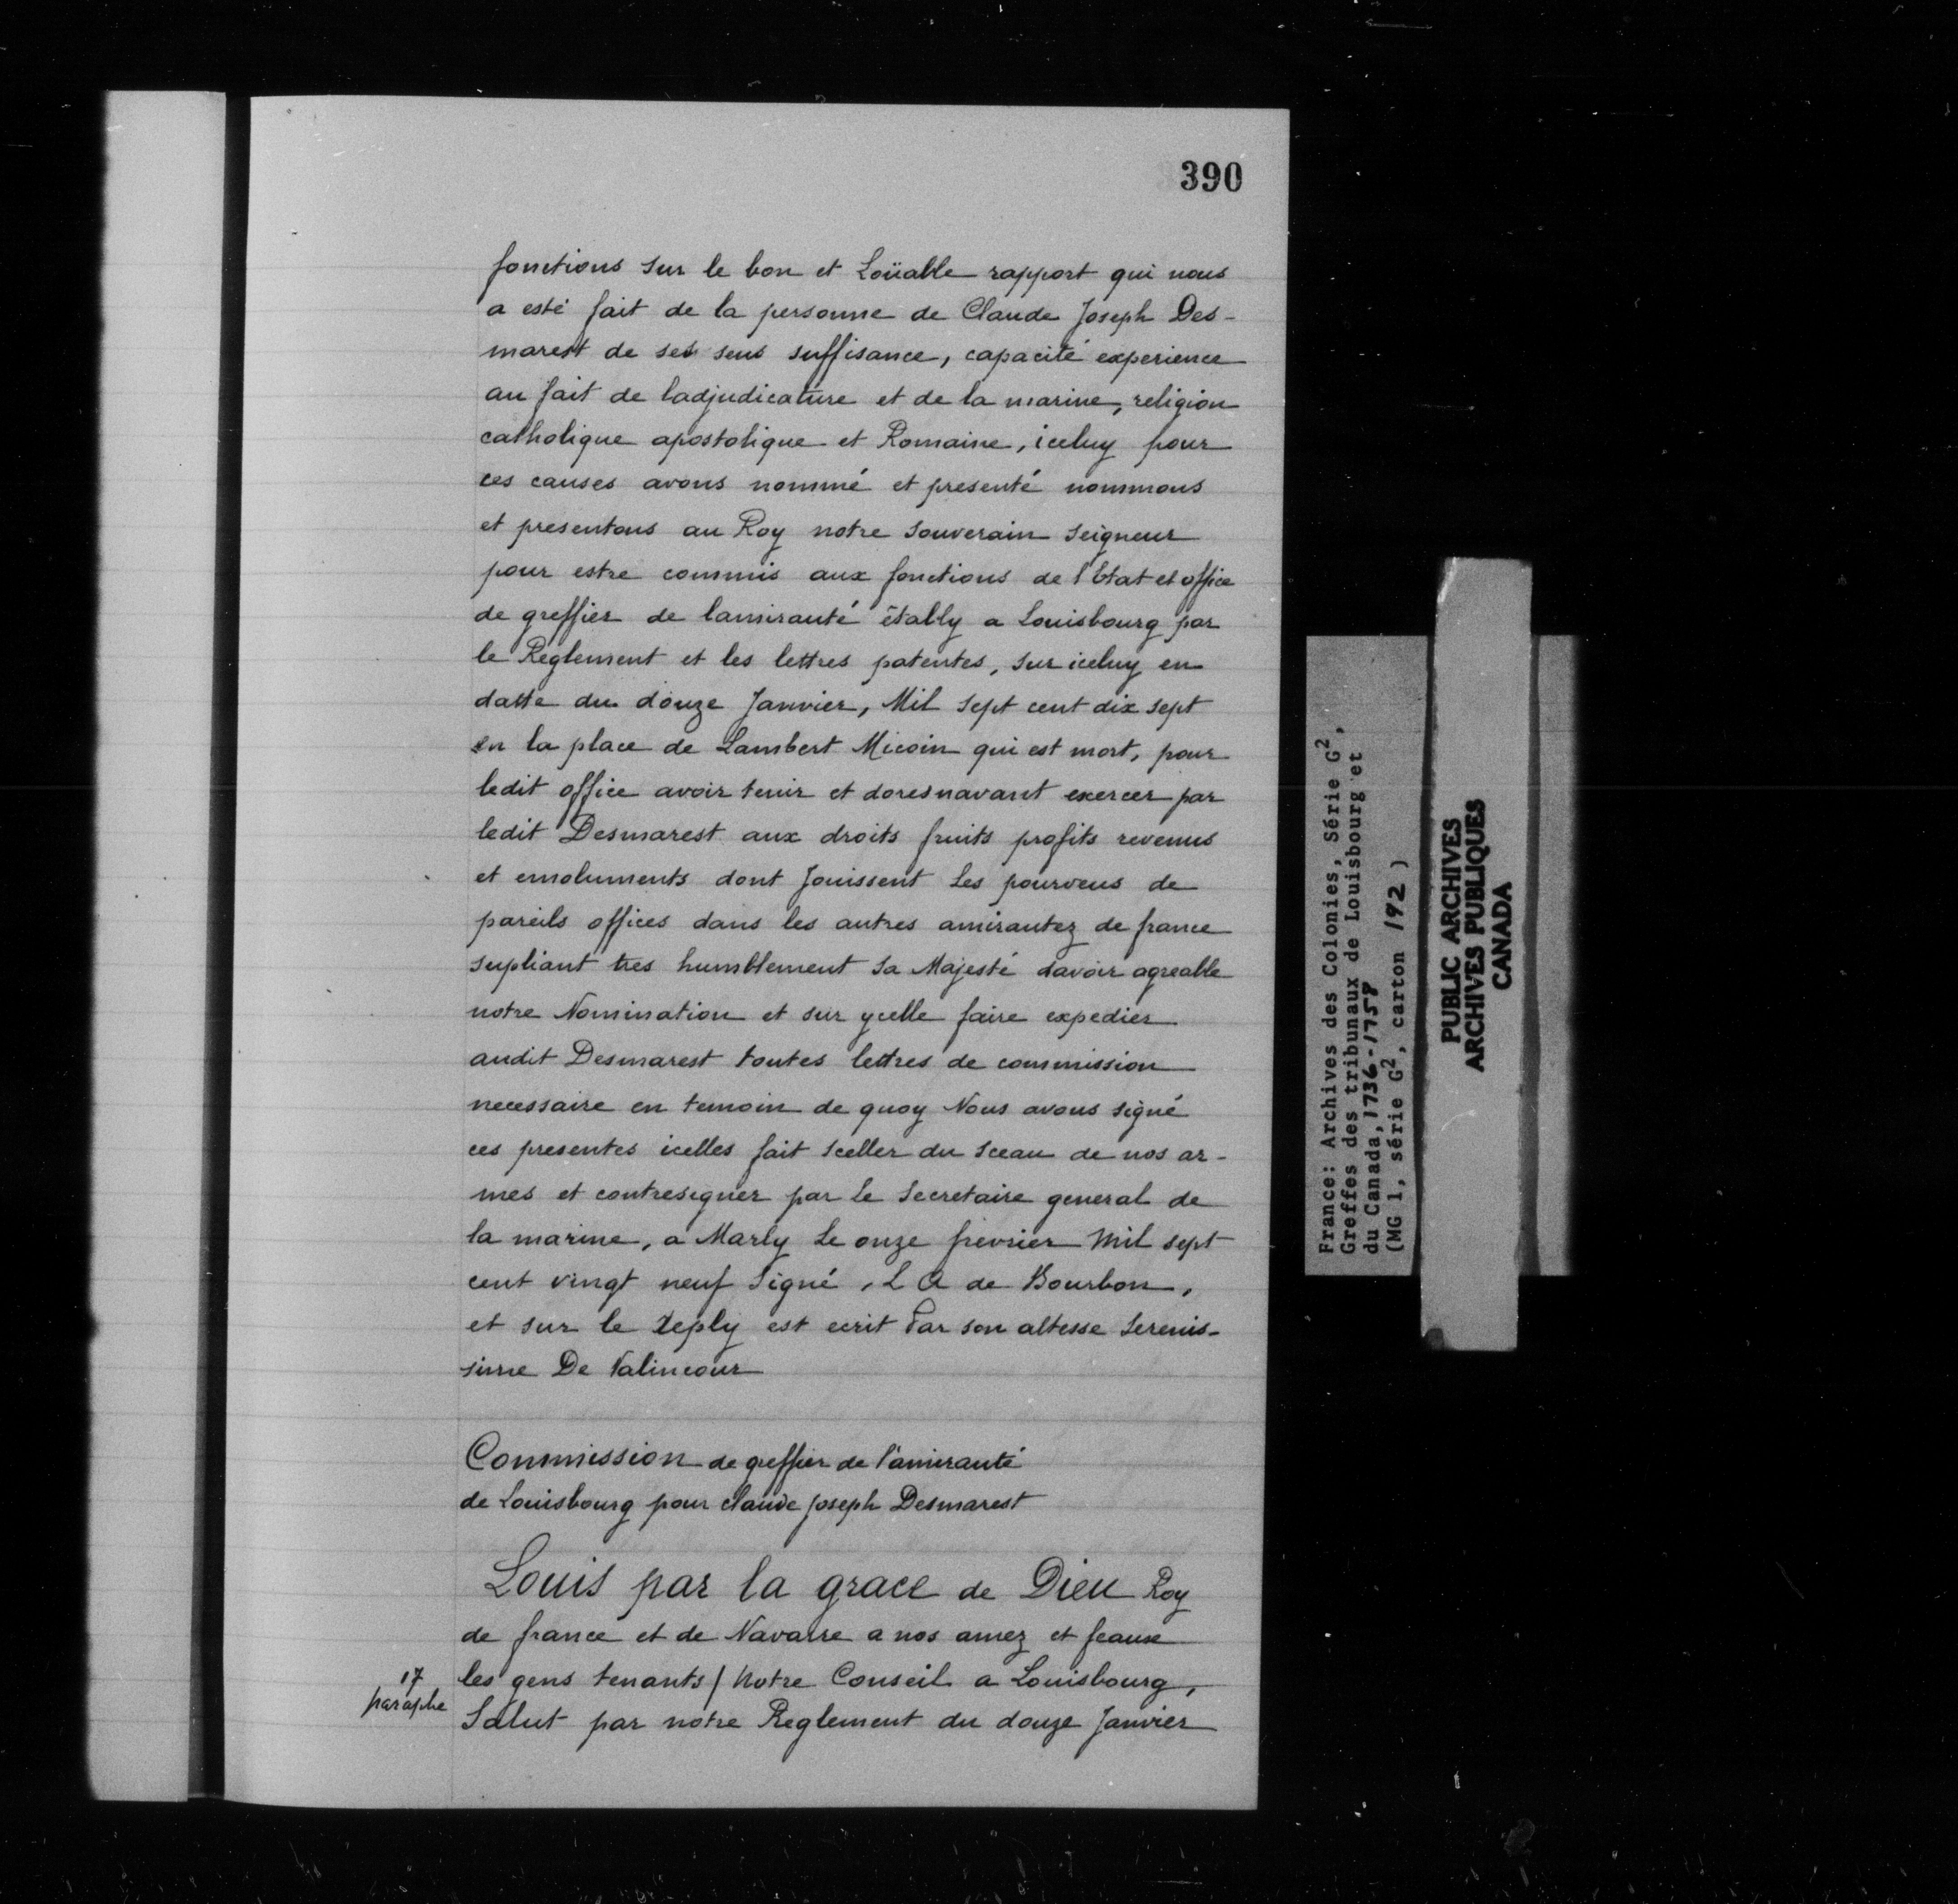 390
fonctions sur le bon et Loüable rapport qui nous
a esté fait de la personne de Claude Joseph Des-
marest de ses sens suffisance, capacité experience
au fait de ladjudicature et de la marine, religion
catholique apostolique et Romaine, iceluy pour
ces causes avons nommé et presenté nommons
et presentons au Roy notre souverain seigneur
pour estre commis aux fonctions de l'Etat et office
de greffier de lamirauté étably a Louisbourg par
le Reglement et les lettres patentes, sur iceluy en
datte du douze Janvier, Mil sept cent dix sept
en la place de Lambert Micoin qui est mort, pour
ledit office avoir tenir et doresnavant exercer par
ledit Desmarest aux droits fruits profits revenus
et emoluments dont Jouissent les pourveus de
pareils offices dans les autres amirautez de france
supliant tres humblement sa Majesté davoir agreable
notre Nomination et sur ycelle faire expedier
audit Desmarest toutes lettres de commission
necessaire en temoin de quoy Nous avons signé
ces presentes icelles fait sceller du sceau de nos ar-
mes et contresigner par le secretaire general de
la marine, a Marly le onze fevrier mil sept
cent vingt neuf signé, L A de Bourbon,
et sur le reply est ecrit Par son altesse serenis-
sime De Valincour
Commission de greffier de l'amirauté
de Louisbourg pour claude joseph Desmarest
Louis par la grace de Dieu Roy
de france et de Navarre a nos amez et feaux
17 les gens tenants / Notre Conseil a Louisbourg,
paraphe Salut par notre Reglement du douze Janvier
France: Archives des Colonies, Série G2,
Greffes des tribunaux de Louisbourg et
du Canada, 1736-1758
(MG 1, série G2, carton 192)
PUBLIC ARCHIVES
ARCHIVES PUBLIQUES
CANADA